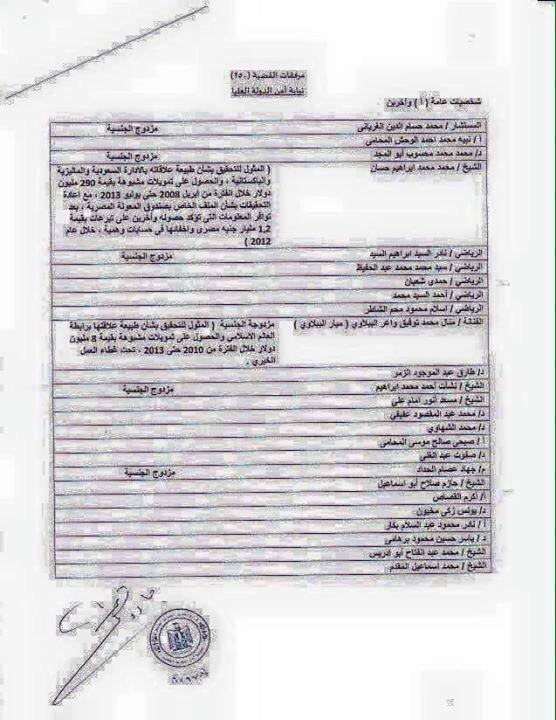 مرفقات القضية (٢٥٠)
نيابة أمن الدولة العليا
شخصيات عامة (أ) وآخرين
المستشار / محمد حسام الدين الغرياني مزدوج الجنسية
أ / نبيه محمد احمد الوحش المحامي
د/ محمد محمد محسوب أبو المجد مزدوج الجنسية
الشيخ / محمد محمد ابراهيم حسان
( المثول للتحقيق بشأن طبيعة علاقاته بالادارة السعودية والماليزية
والباكستانية ، والحصول على تمويلات مشبوهة بقيمة 290 مليون
دولار خلال الفترة من ابريل 2008 حتى يوليو 2013 ، مع اعادة
التحقيقات بشأن الملف الخاص بصندوق المعونة المصرية ، بعد
توافر المعلومات التي تؤكد حصوله وآخرين على تبرعات بقيمة
1,2 مليار جنيه مصرى واخفائها في حسابات وهمية ، خلال عام
2012 )
الرياضي / نادر السيد ابراهيم السيد مزدوج الجنسية
الرياضي / سيد محمد محمد عبد الحفيظ
الرياضي / حمدي شعبان
الرياضي / أحمد السيد محمد
الرياضي / اسلام محمود محمد الشاطر
الفنانة / منال محمد توفيق واعر الببلاوي ( ميار الببلاوي )
مزدوجة الجنسية ( المثول للتحقيق بشأن طبيعة علاقتها برابطة
العالم الاسلامي والحصول على تمويلات مشبوهة بقيمة 8 مليون
دولار خلال الفترة من 2010 حتى 2013 ، تحت غطاء العمل
الخيري .
د/ طارق عبد الموجود الزمر
الشيخ / نشأت أحمد محمد ابراهيم مزدوج الجنسية
الشيخ / مسعد أنور امام على
د/ محمد عبد المقصود عفيفي
د/ محمد الشهاوي
أ / صبحي صالح موسى المحامي
د/ صفوت عبد الغني
م/ جهاد عصام الحداد مزدوج الجنسية
الشيخ / حازم صلاح أبو اسماعيل
أ/ أكرم القصاص
د/ يونس زكي مخيون
أ / نادر محمود عبد السلام بكار
د / ياسر حسين محمود برهامي
الشيخ / محمد عبد الفتاح أبو ادريس
الشيخ / محمد اسماعيل المقدم